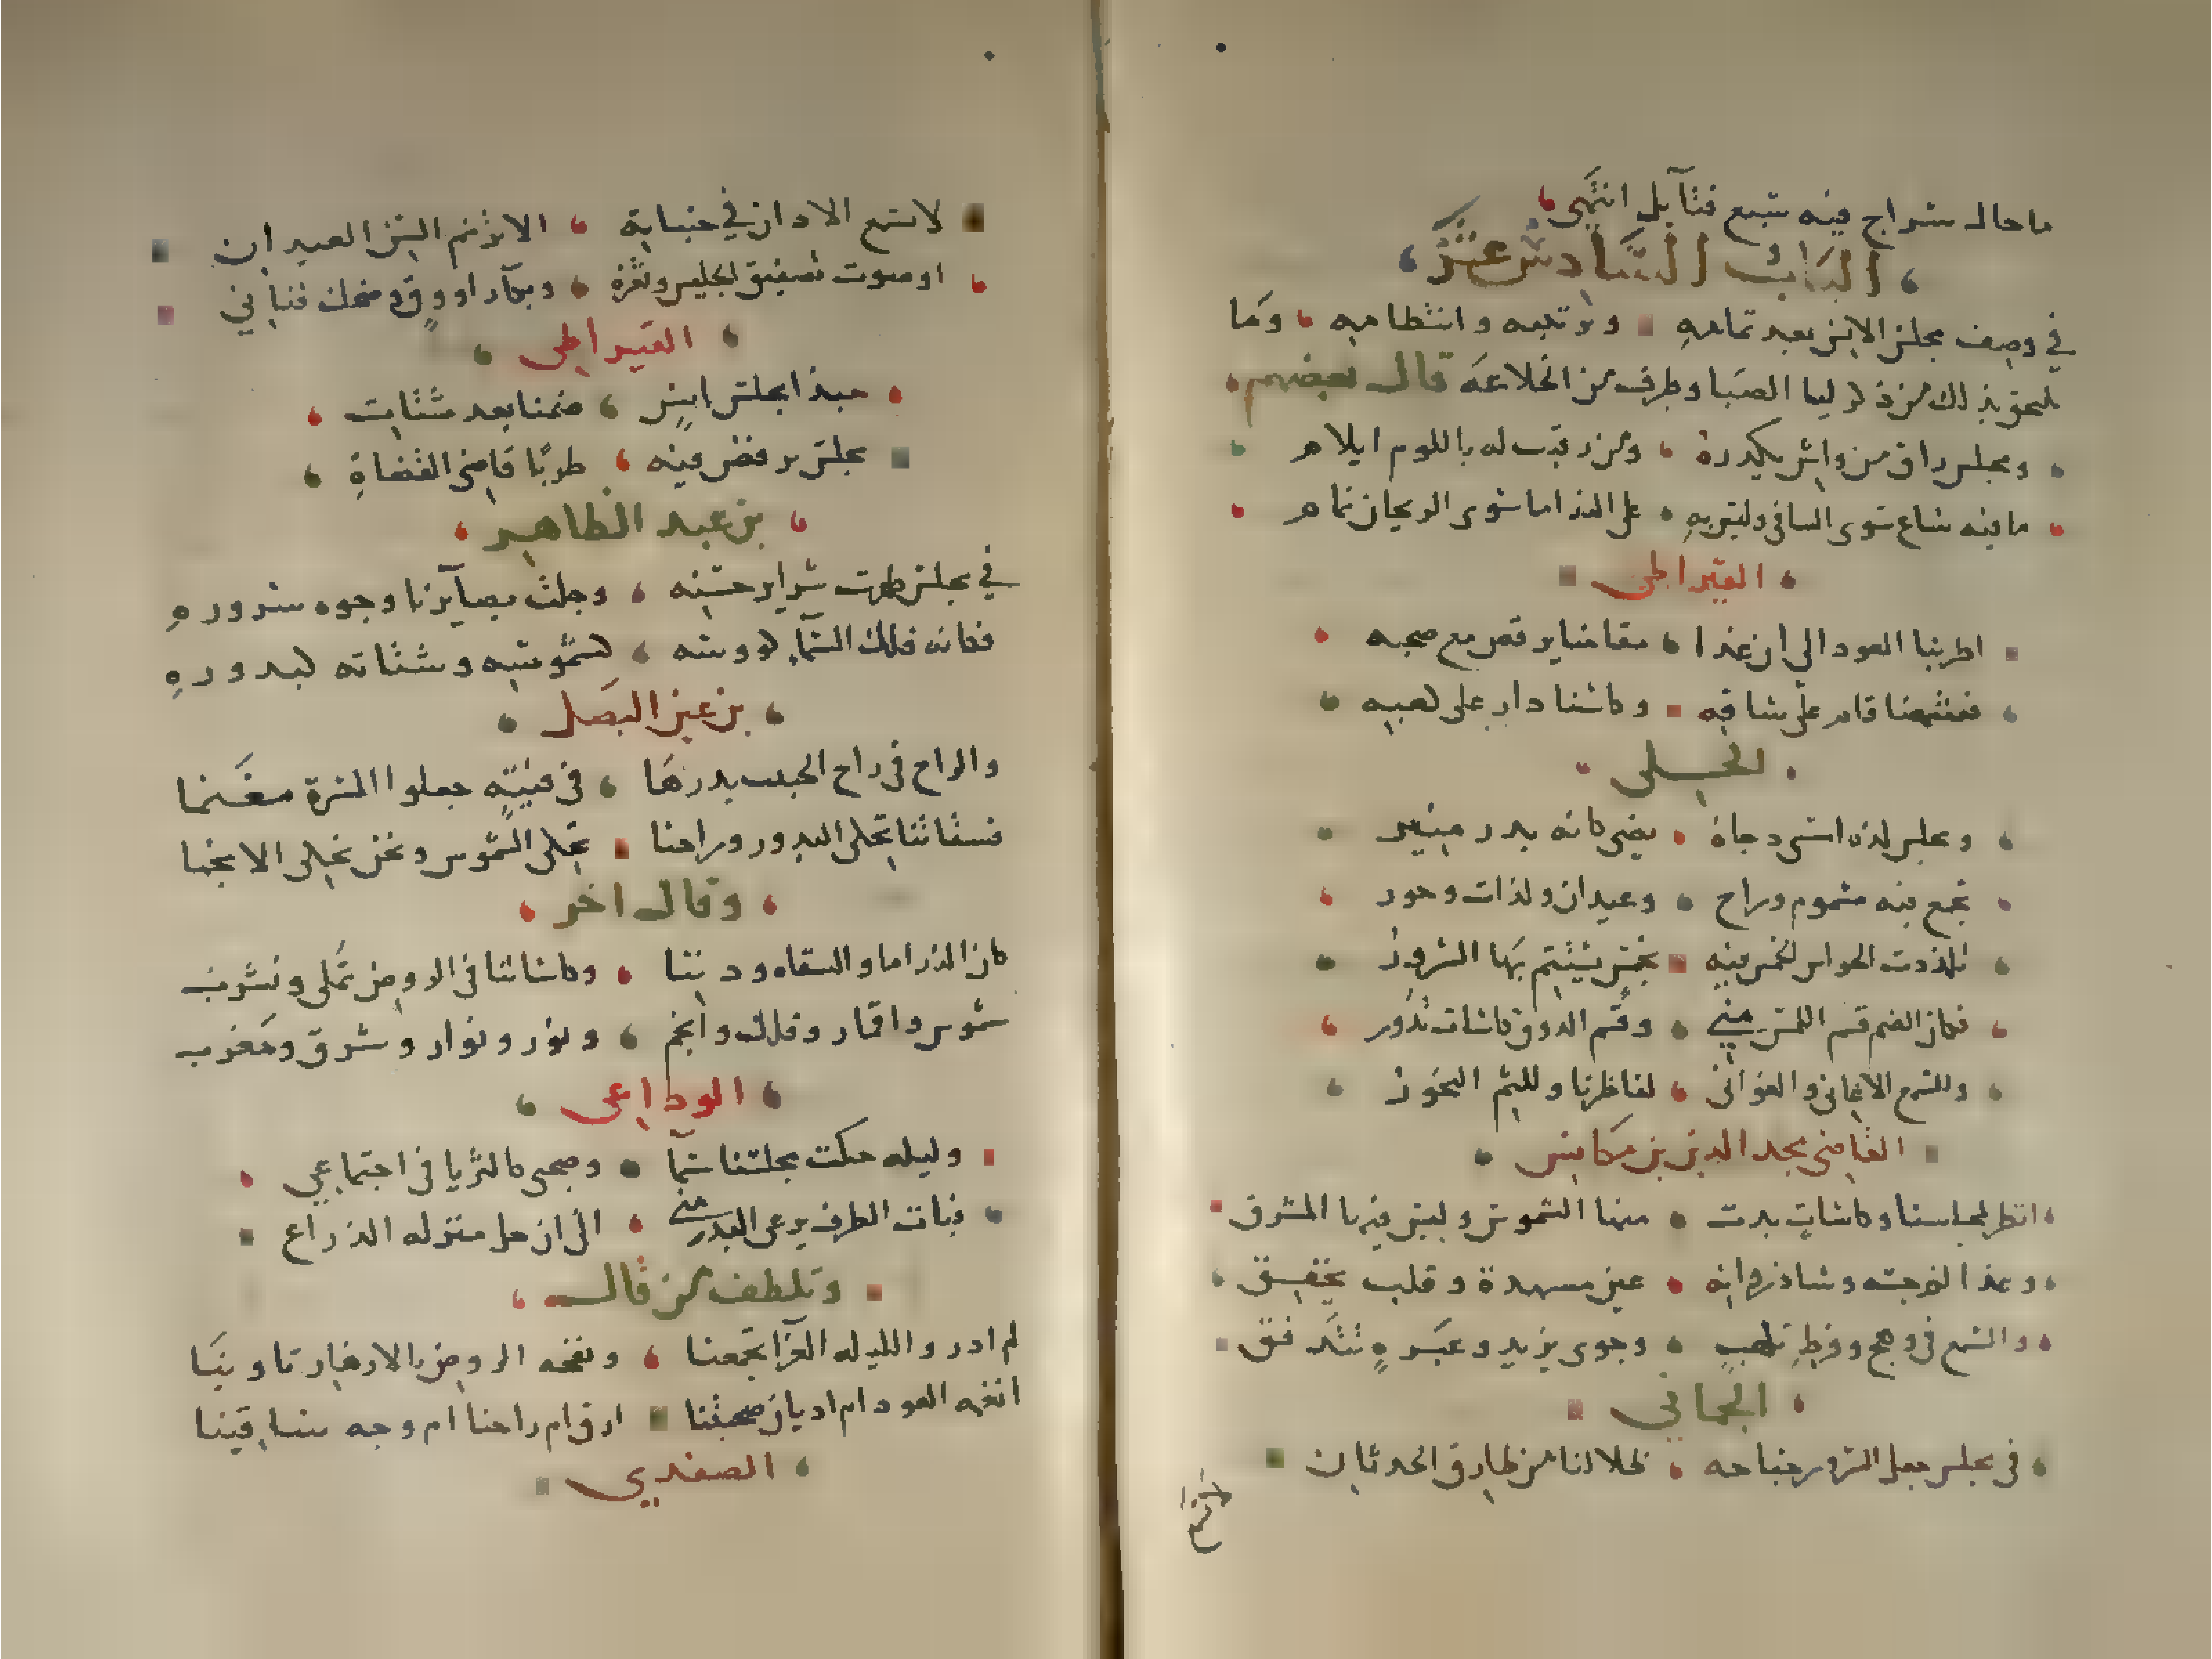 ما حال سراج فيه تسع فتايل انتهى
الباب السادس عشر
في وصف مجلس الانس بعد تمامه وترتيبه وانتظامه وما
يلحق بذلك من ذكر ليا الصبا وطرف من الخلاعة قال بعضهم
ومجلس راق من واش يكدره ومن رقيب له باللوم ايلام
ما فيه ساع سوى الساقي وليس به على الندامى سوى الريحان نمام
القيراطي
اطربنا العود الى ان غدا مقامنا يرقص مع صحبه
فشمعنا قام على ساقه وكاسنا دار على كعبه
الحلى
ومجلس لذه امسى دجاه يضي كانه بدر منير
تجمع فيه مشموم وراح وعيدان ولذات وحور
تلذذت الحواس الخمس فيه بخمس يستتم بها السرور
فكان الضم قسم اللمس مني وقسم الذوق كاسات تدور
وللسمع الاغاني والغواني لناظرنا وللشم البخور
القاضي مجد الدين بن مكانس
انظر لمجلسنا وكاسات بدت منها الشموس وليس فيها المشرق
وغدا لنرجسه وشاذروانه عين مسهدة وقلب يخفق
والشمع في وهج وفرط تلهب وجوى يزيد وعبرة تترقرق
الحماني
في مجلس جعل السرور جناحه ظلا لنا من طارق الحدثان
لا تسمع الاذان في جنباته الا ترنم السن العيدان
او صوت تصفيق الجليس ونقره وبكا راووق وضحك قناني
القيراطي
حبذا مجلس انس ضمنا بعد شتات
مجلس يرقص فيه طربا قاضي القضاة
بن عبد الظاهر
في مجلس ظهرت سراير حسنه وجلت بصايرنا وجوه سروره
فكانه فلك السما كووسه كشموسه وسقاته كبدوره
بن عين البصل
والراح في راح الحبيب يديرها في فتيته جعلوا المسرة مغنما
فسقاتنا تجلى البدور وراحنا تجلى الشموس ونحن نجلى الانجما
وقال اخر
كان الندامى والسقاه ودننا وكاساتنا في الروض تملى ونشرب
شموس واقمار وفلك وانجم ونور ونوار وشرق ومغرب
الوداعى
وليله حكت مجلسنا سما وصحبى كالثريا في اجتماعي
فبات الطرف يرعى البدر مني الى ان حل منزله الذراع
وتلطف من قال
لم ادر والليله الغرا تجمعنا ونفحه الروض بالازهار تاوينا
انغمه العود ام اديان صحبتنا ارق ام راحنا ام وجه ساقينا
الصفدي